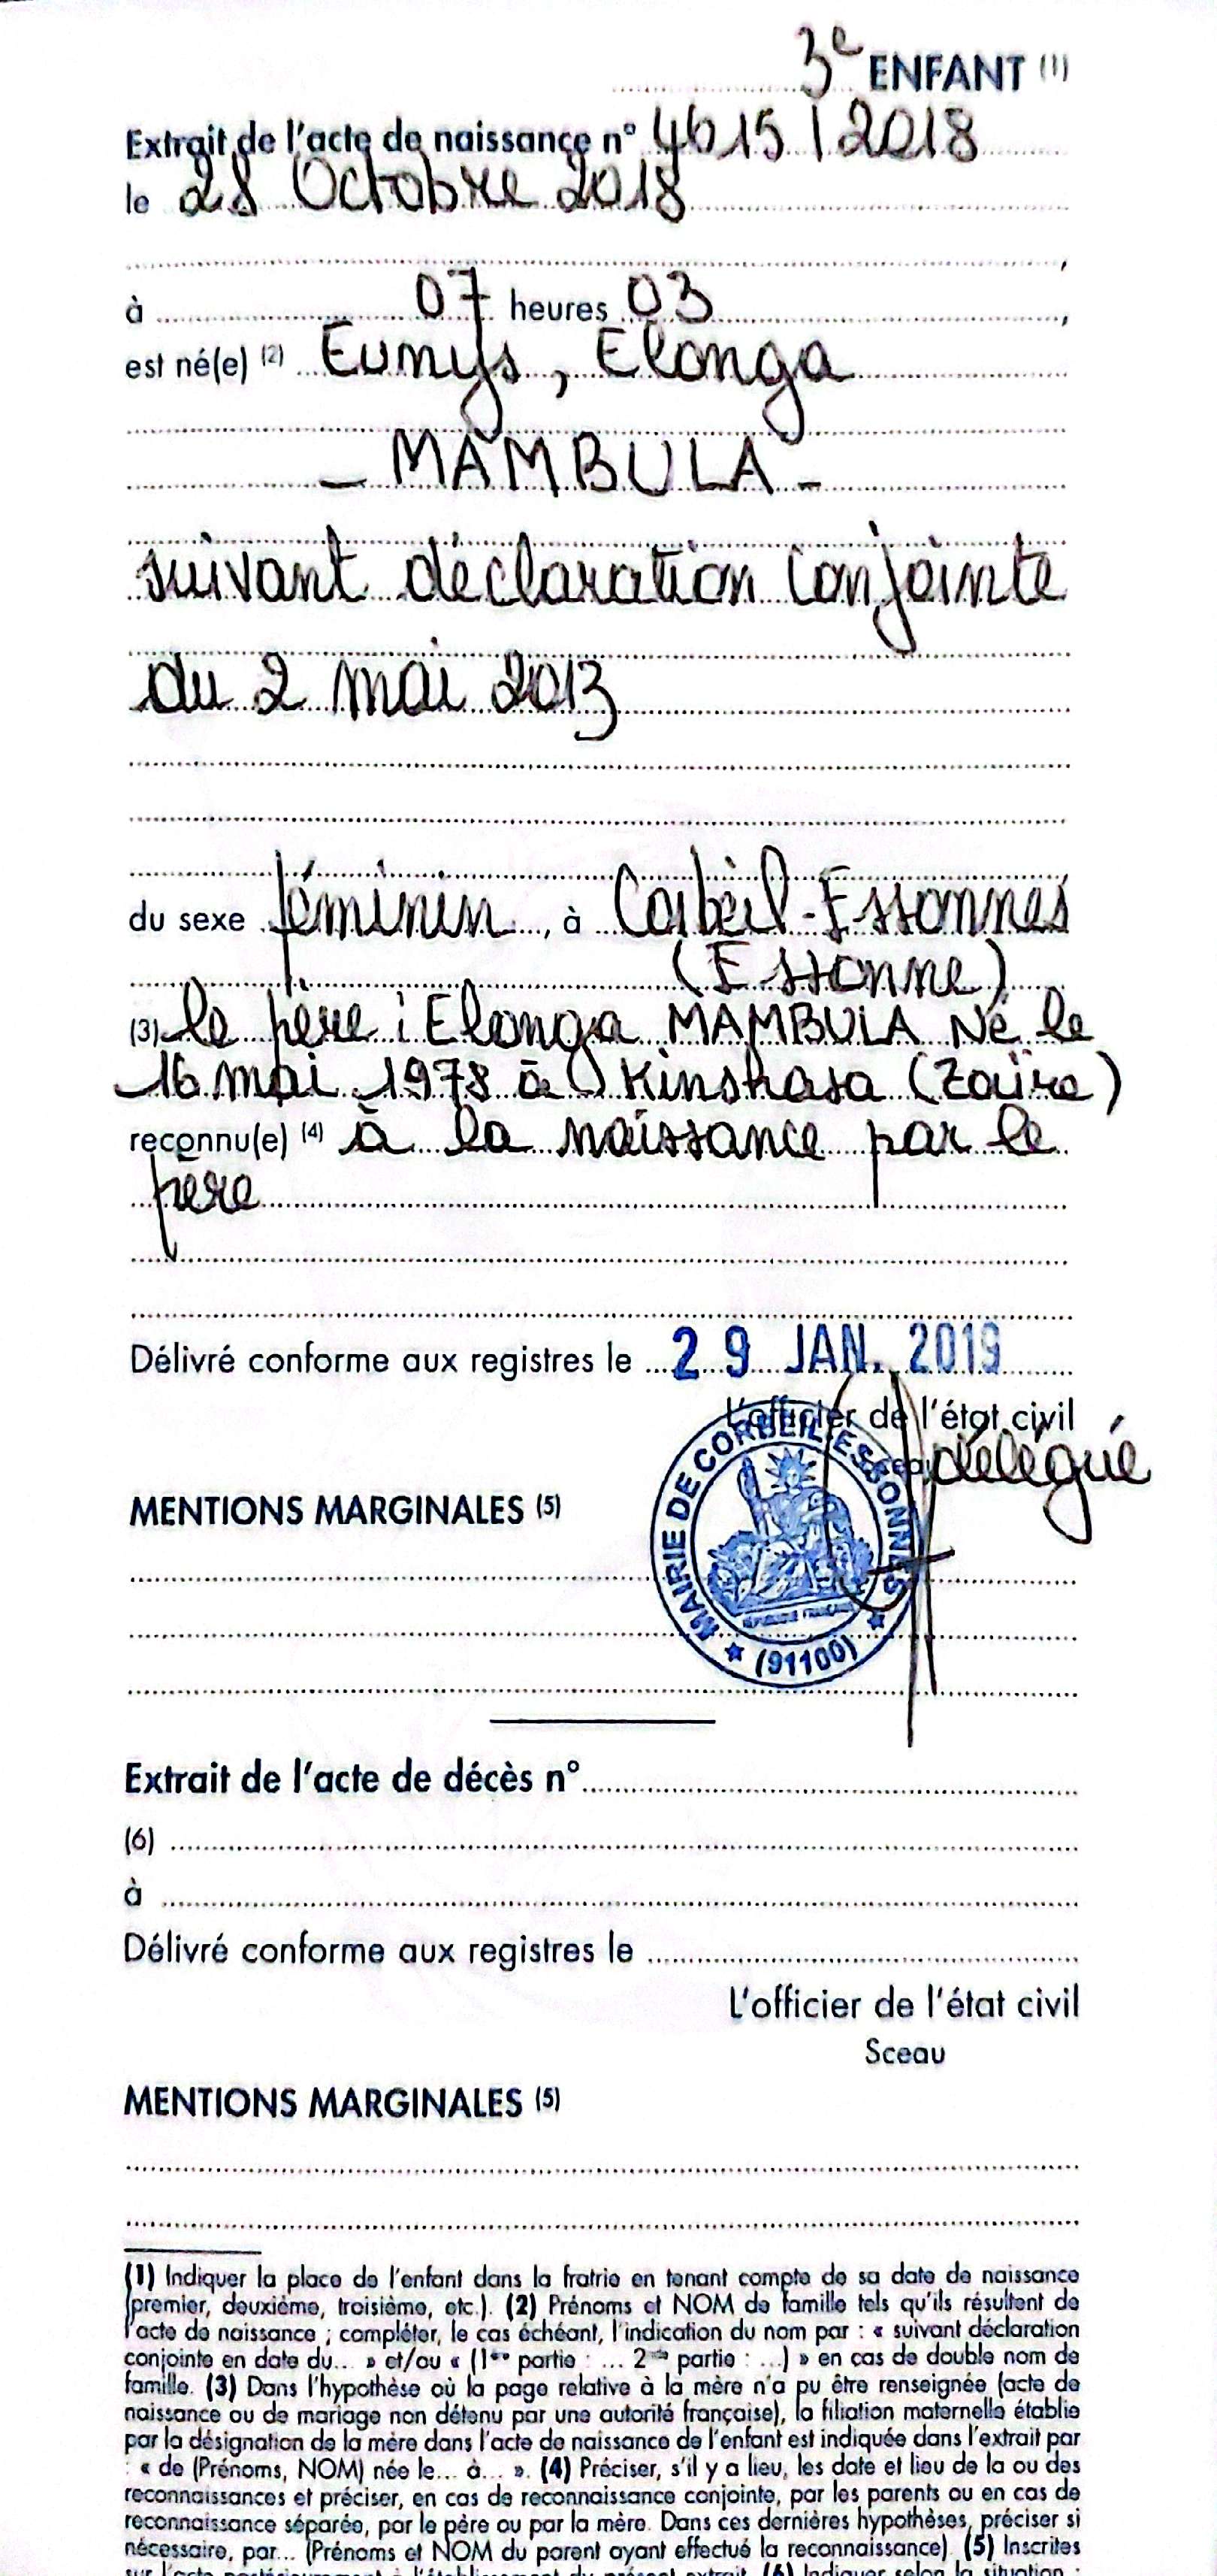 3e ENFANT (1)
Extrait de l'acte de naissance n° 4615/2018
le 28 Octobre 2018
,
à 07 heures 03 ,
est né(e) (2) Eunys, Elonga
- MAMBULA -
suivant déclaration conjointe
du 2 mai 2013
du sexe féminin, à Corbeil-Essonnes
(Essonne)
(3) le père : Elonga MAMBULA Né le
16 mai 1978 à Kinshasa (Zaïre)
reconnu(e) (4) à la naissance par le
père
Délivré conforme aux registres le 29 JAN. 2019
L'officier de l'état civil
Sceau délégué
MAIRIE DE CORBEIL-ESSONNES
RÉPUBLIQUE FRANÇAISE
(91100)
MENTIONS MARGINALES (5)
Extrait de l'acte de décès n°
(6)
à
Délivré conforme aux registres le
L'officier de l'état civil
Sceau
MENTIONS MARGINALES (5)
(1) Indiquer la place de l'enfant dans la fratrie en tenant compte de sa date de naissance
(premier, deuxième, troisième, etc.). (2) Prénoms et NOM de famille tels qu'ils résultent de
l'acte de naissance ; compléter, le cas échéant, l'indication du nom par : « suivant déclaration
conjointe en date du... » et/ou « (1ère partie : ... 2nde partie : ...) » en cas de double nom de
famille. (3) Dans l'hypothèse où la page relative à la mère n'a pu être renseignée (acte de
naissance ou de mariage non détenu par une autorité française), la filiation maternelle établie
par la désignation de la mère dans l'acte de naissance de l'enfant est indiquée dans l'extrait par
: « de (Prénoms, NOM) née le... à... ». (4) Préciser, s'il y a lieu, les date et lieu de la ou des
reconnaissances et préciser, en cas de reconnaissance conjointe, par les parents ou en cas de
reconnaissance séparée, par le père ou par la mère. Dans ces dernières hypothèses, préciser si
nécessaire, par... (Prénoms et NOM du parent ayant effectué la reconnaissance). (5) Inscrites
sur l'acte postérieurement à l'établissement du présent extrait. (6) Indiquer selon la situation :